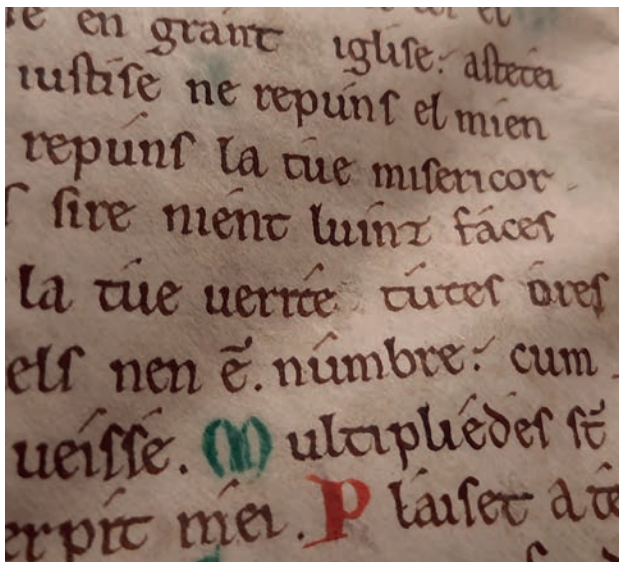 en gránt iglise: astetei
iustise ne repúns el mien
repúns la túe misericor
sire niént luinz fáces
la túe uerrée tútes óres
els nen ē. númbre: cum
ueísse. Multipliédes st̄
erpít méi. Pláiset a té